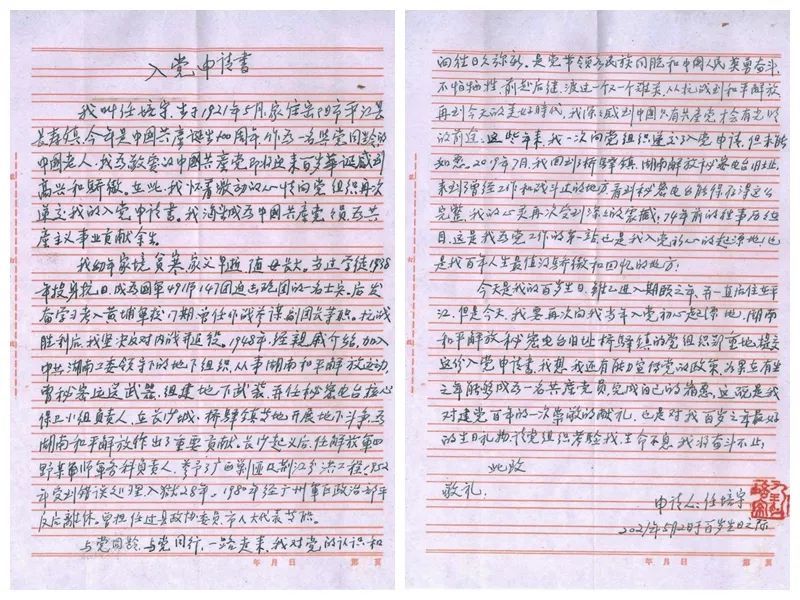 入党申请书
我叫任培宇，生于1921年5月，家住岳阳市平江县
长寿镇，今年是中国共产诞生100周年，作为一名与党同龄的
中国老人，我为敬爱的中国共产党即将迎来百岁华诞感到
高兴和骄傲。在此，我怀着激动的心情向党组织再次
递交我的入党申请书。我渴望成为中國共產党党员，为共
産主义事业贡献余生。
我幼年家境贫寒，家父早逝，随母長大。当过学徒，1938
年投身抗日，成为国軍49师147团迫击炮团的一名士兵。后发
奋学习考入黄埔军校17期，曾任作战参谋、副团長等职。抗战
胜利后，我坚决反对内战并退役。1948年，经親戚介绍，加入
中共湖南工委领导下的地下组织，从事湖南和平解放运动，
曾秘密运送武器，组建地下武装，并任秘密电台核心
保卫小组负责人，在长沙城、桥驿镇等地开展地下斗争，为
湖南和平解放作出了重要贡献。长沙起义后，任解放軍四
野某部师軍务科负责人，参与广西剿匪及荆江分洪工程。1952
年受到错误处理入狱28年。1980年经广州军区政治部平
反后離休。曾担任过县政协委员、市人大代表等职。
与党同龄，与党同行，一路走来，我对党的认识和
向往日久弥新。是党带领各民族同胞和中國人民英勇奋斗，
不怕牺牲，前赴后继，渡过一个又一个难关，从抗战到和平解放
再到今天的美好時代，我深深感到中國只有共産党才会有光明
的前途。这些年来，我一次向党组织递交入党申请，但未能
如愿。2019年7月，我回到桥驿镇，湖南解放秘密电台旧址，
来到曾经工作和战斗过的地方看到秘密电台旧址保存得这么
完整，我的心灵再次受到深深的震撼，74年前的往事历历在
目，这是我为党工作的第一站，也是我入党初心的起源地，也
是我百年人生最值得骄傲和回忆的地方！
今天是我的百岁生日，雖已进入期颐之年，并一直居住在平
江，但是今天，我要再次向我当年入党初心起源地，湖南
和平解放秘密电台旧址桥驿镇的党组织郑重地提交
这份入党申请書。我想，我还有能力宣传党的政策，如果在有生
之年能够成为一名共産党员，完成自己的夙愿，这既是我
对建党百年的一次崇敬的献礼，也是对我百岁之年最好
的生日礼物，请党组织考验我，生命不息，我将奋斗不止！
此致
敬礼！
申请人：任培宇
2021年5月2日于百岁生日之际
年 月 日 第 頁
年 月 日 第 頁